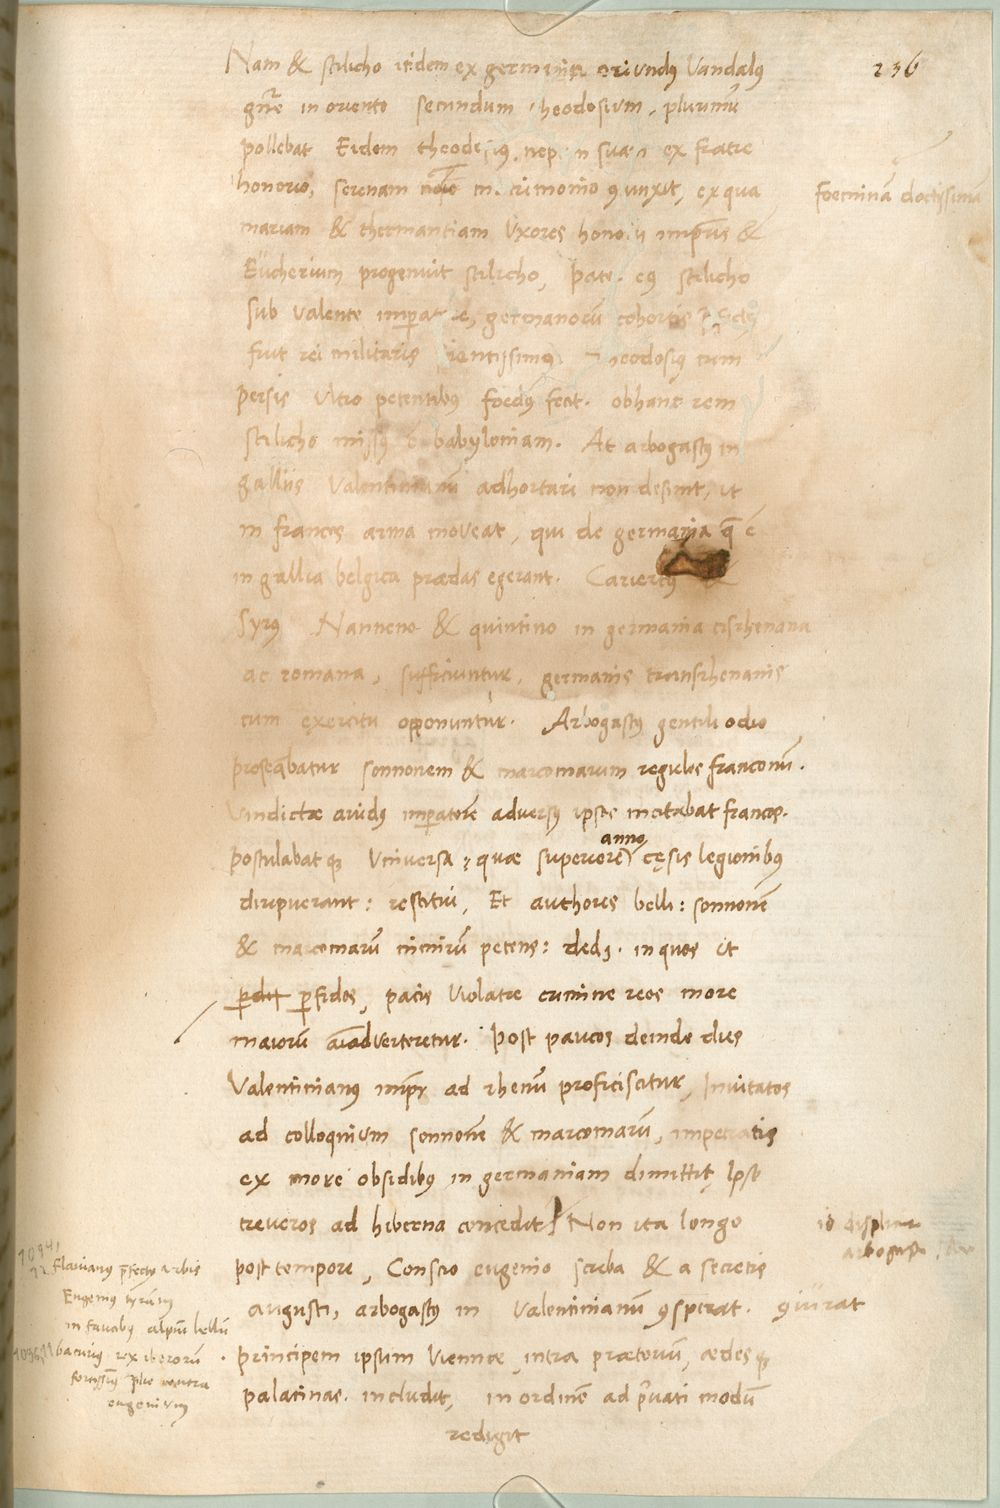 236
Nam & stilicho itidem ex germania oriundꝰ Vandalꝰ
gn̄e in oriente secundum theodosium, plurimū
pollebat Eidem theodosiꝰ, neptem suam ex fratre
honorio, serenam noīe matrimonio ꝯiunxit, ex qua
foeminā doctissimā
mariam & thermantiam Uxores honorii imp̄ris &
Eucherium progenuit stilicho, pater eiꝰ stilicho
sub Valente imperatore, germanorū cohortis
fuit rei militaris theodosiꝰ cum
persis Ultro petentibꝰ foedꝰ fecit. ob hanc rem
stilicho missꝰ ē babyloniam. At arbogastꝰ in
galliis Valentinianū adhortari non desinit, ut
in francos arma moveat, qui de germania q̄ ē
in gallia belgica praedas egerant. Carietto &
Syrꝰ Nanneno & quintino in germania cisrhenana
ac romana, sufficiuntur, germanis transrhenanis
cum exercitu opponuntur. Arbogastꝰ gentili odio
prosequebatur sonnonem & marcomarum regulos franconū.
Vindictae avidꝰ imperatorē adversꝰ ipsos incitabat francos.
anno
postulabatqꝫ Universa: quae superiorē cęsis legionibꝰ
diripuerant: restitui, Et authores belli: sonnonē
& marcomarū nimirū petens: dedi. in quos ut
perdit perfidos, pacis Violatae crimine reos more
maiorū aīadverteretur. Post paucos deinde dies
Valentinianꝰ imp̄r ad rhenū proficiscitur, Invitatos
ad colloquium sonnonē & marcomarū, imperatis
ex more obsidibꝰ in germaniam dimittit, Ipse
treveros ad hiberna concedit. Non ita longo
id displicuit
arbogasto
post tempore, Conscio eugenio scriba & a secretis
augusti, arbogastꝰ in Valentinianū ꝯsperat. ꝯiūrat
principem ipsum Viennae, intra praetoriū, aedesqꝫ
palatinas includit, in ordinē ad p̄vati modū
redigit
flavianꝰ p̄fectꝰ urbis
Eugeniꝰ tyrānꝰ
in faucibꝰ alpiū bellū
bacuriꝰ rex iberorū
fortissimꝰ contra
eugenium